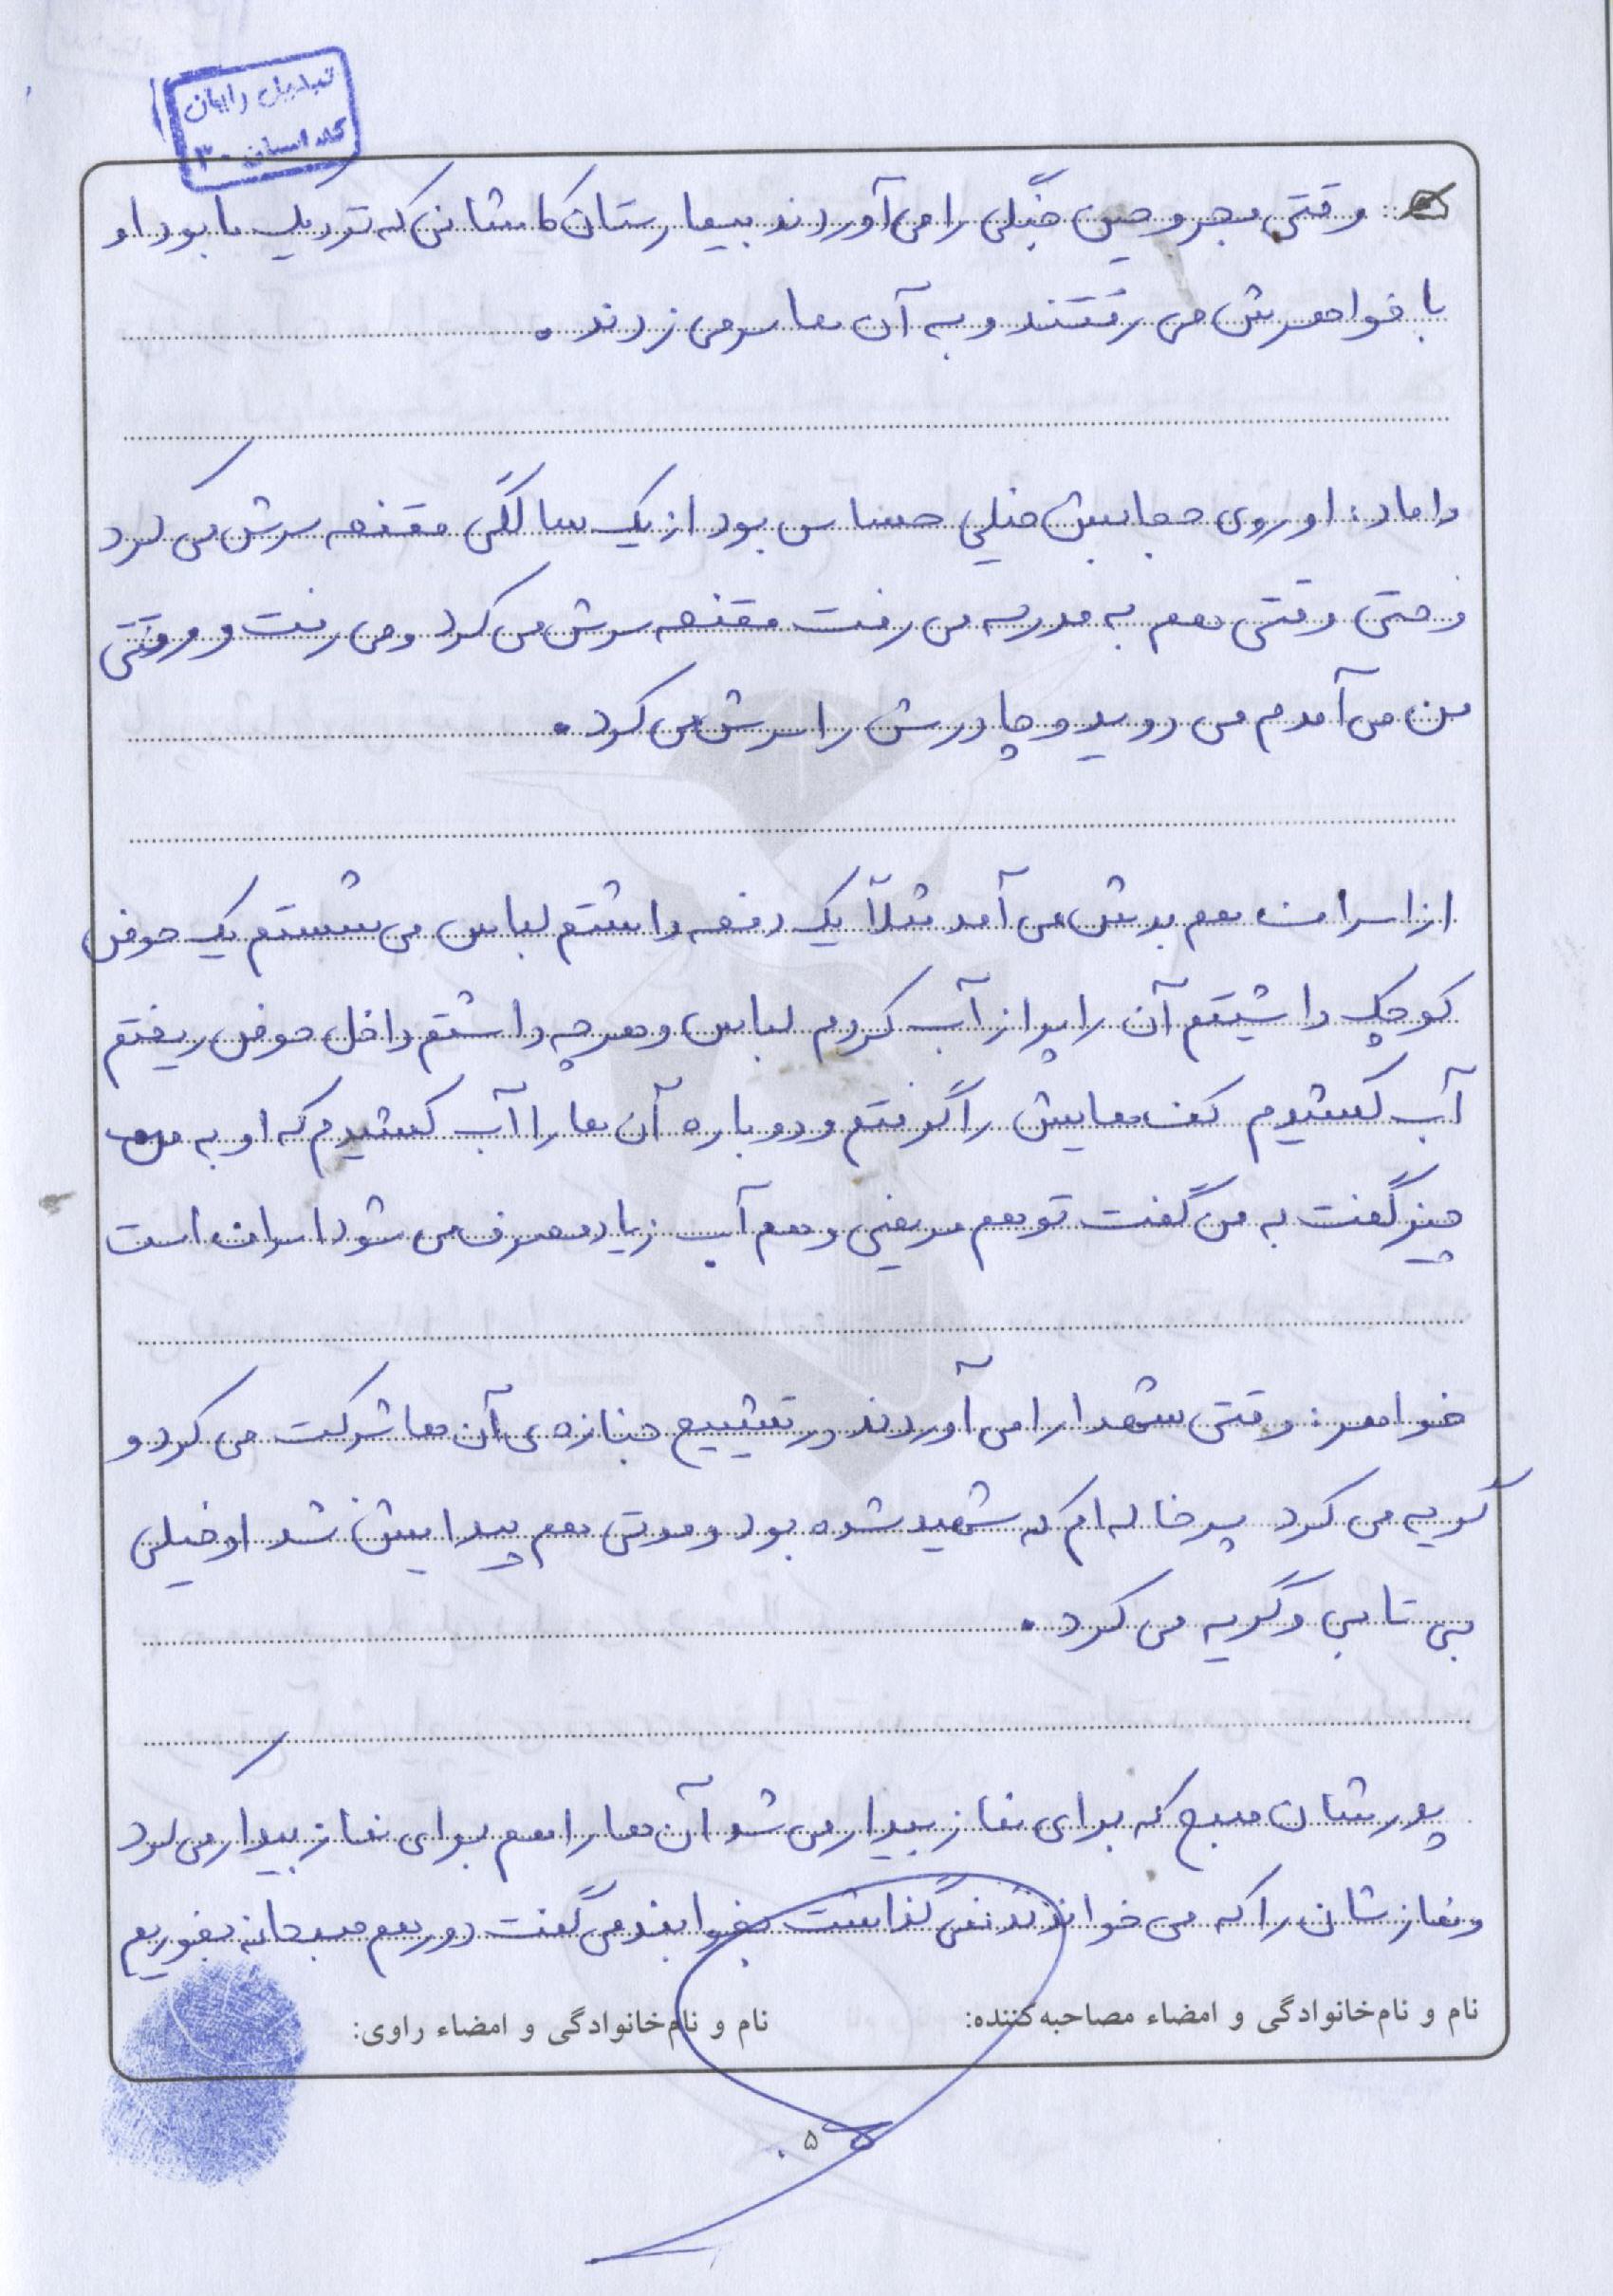 تبدیل رایان
کد استان ۳۰
وقتی مجروحین جنگی را می‌آوردند بیمارستان کاشانی که نزدیک ما بود او
با خواهرش می رفتند و به آن ها سر می زدند.
داماد: او روی حجابش خیلی حساس بود از یک سالگی مقنعه سرش می کرد
و حتی وقتی هم به مدرسه می رفت مقنعه سرش می کرد و می رفت و وقتی
من می آمدم می دوید و چادرش را سرش می کرد.
از اسراف هم بدش می آمد مثلاً یک دفعه داشتم لباس می شستم یک حوض
کوچک داشتیم آن را پر از آب کردم لباس و هرچه داشتم داخل حوض ریختم
آب کشیدم کف هایش را گرفتم و دوباره آن ها را آب کشیدم که او به من
چیز گفت به من گفت تو هم مریضی و هم آب زیاد مصرف می شود اسراف است
خواهر: وقتی شهدا را می آوردند در تشییع جنازه ی آن ها شرکت می کرد و
گریه می کرد پسر خاله ام که شهید شده بود و مدتی هم پیدایش نشد او خیلی
بی تابی و گریه می کرد.
پدرشان صبح که برای نماز بیدار می شد آن ها را هم برای نماز بیدار می کرد
و نمازشان را که می خواندند نمی گذاشت بخوابند می گفت دور هم صبحانه بخوریم
نام و نام‌خانوادگی و امضاء مصاحبه‌کننده:
نام و نام‌خانوادگی و امضاء راوی:
۵